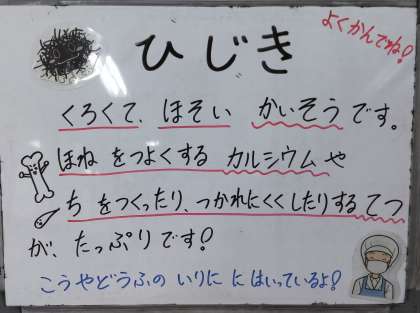 ひじき
よくかんでね!
くろくて、ほそい かいそうです。
ほねをつよくする カルシウムや
ちをつくったり、つかれにくくしたりするてつ
が、たっぷりです!
こうやどうふの いりに に はいっているよ!